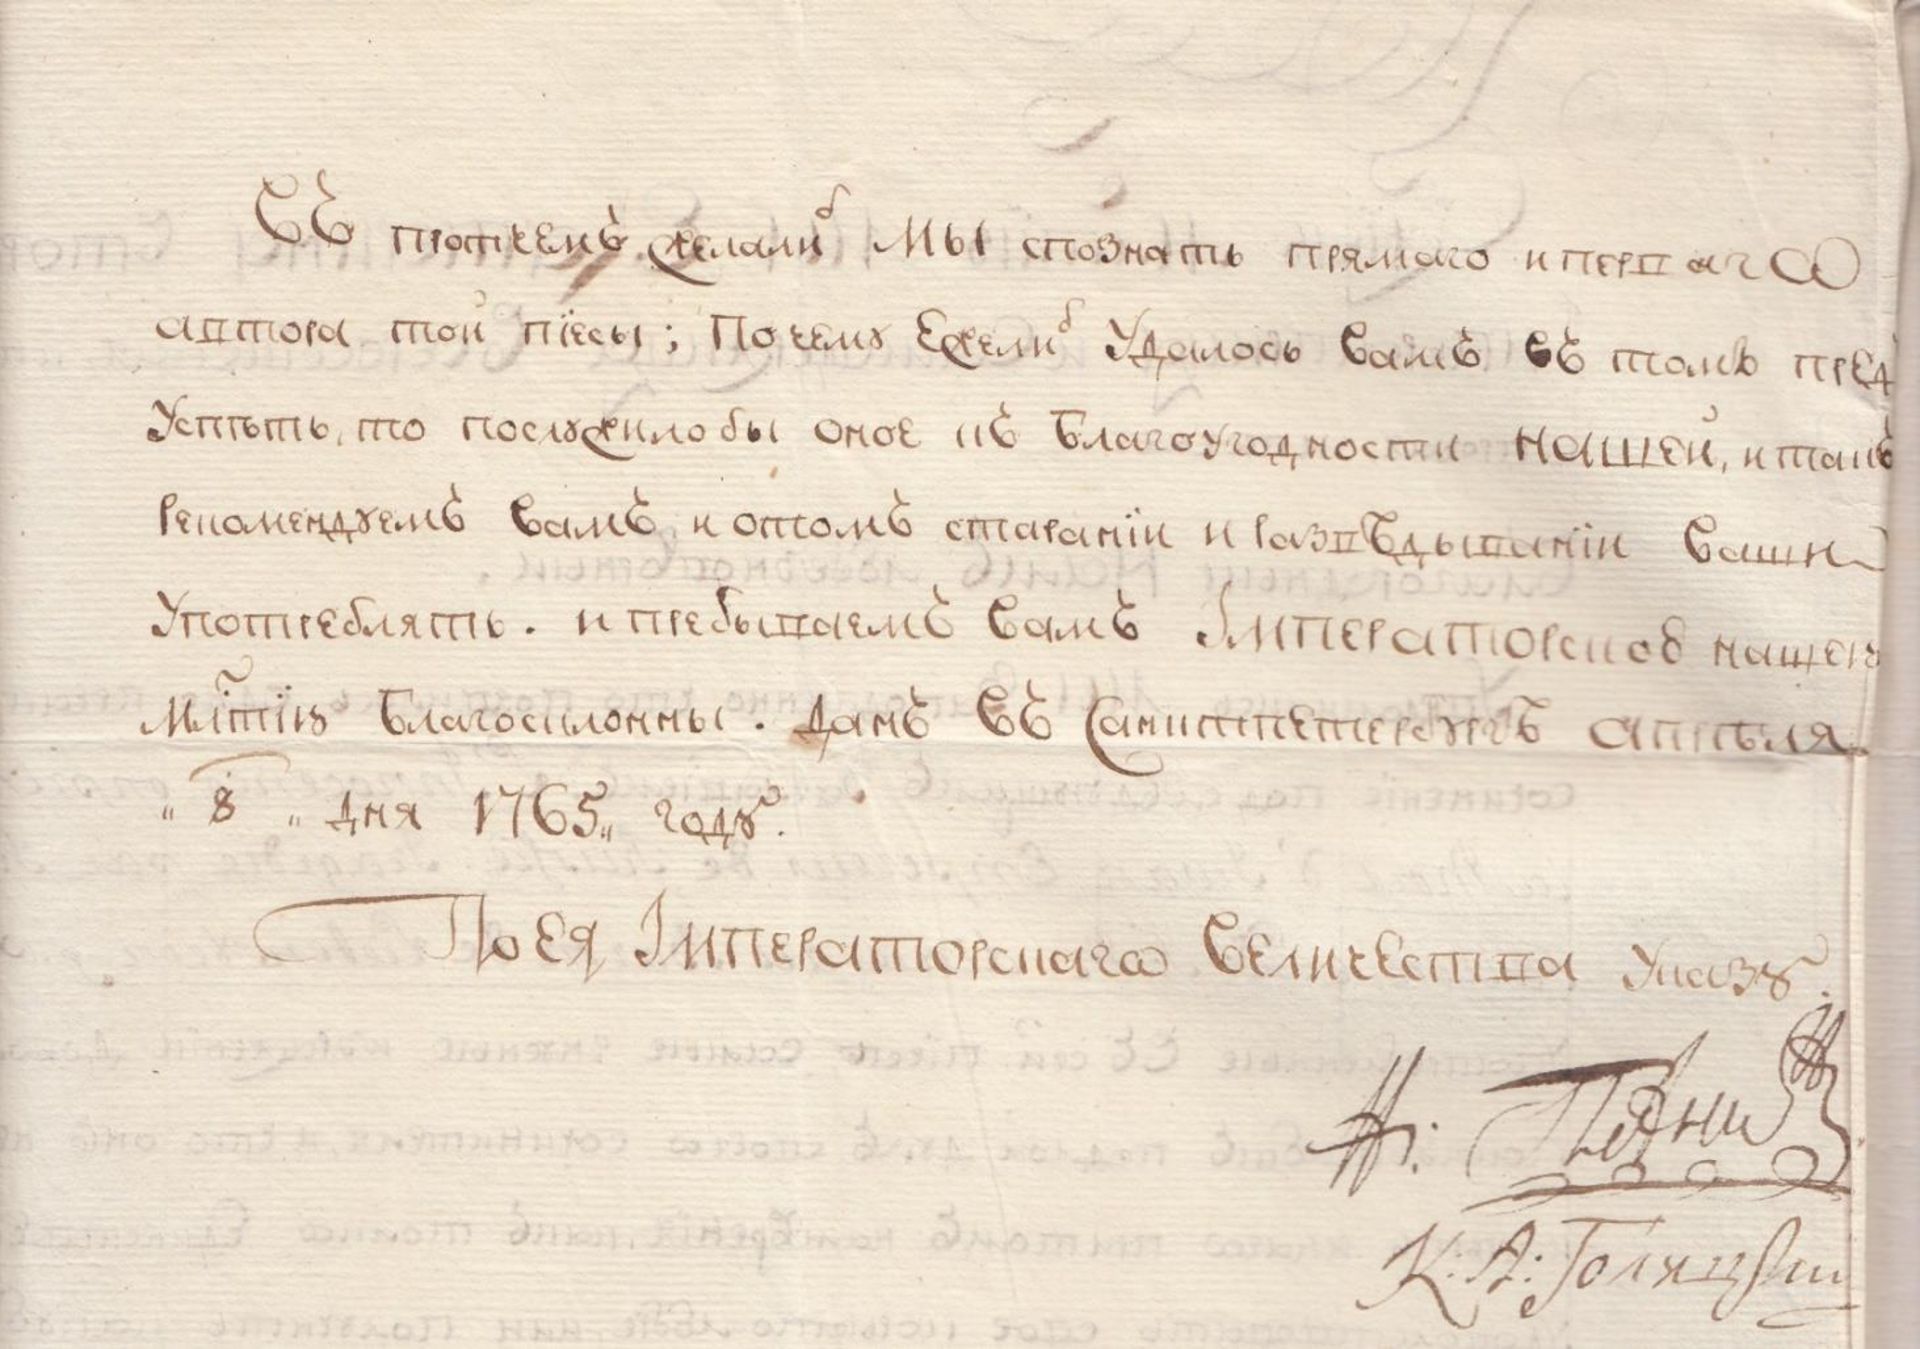 Въ протчемъ желали б мы спознать прямаго и перваго
автора той піесы; Почему Ежели б Удалось Вамъ Въ томъ пред
Успѣть, то послужилобы оное къ Благоугодности нашей, и такъ
Рекомендуемъ Вамъ и отомъ стараніи и развѣдываніи Ваши
Употреблять. и пребываемъ Вамъ Імператорскою нашею
млⷭ҇тію Благосклонны. данъ Въ Санктпетербургѣ апрѣля
„ 8 „ дня 1765„ году.
По Ея Імператорскаго Величества Указу.
Н: Панинъ
К: А: Голицын